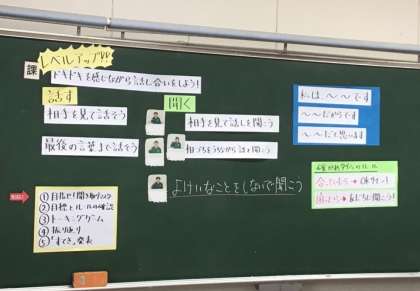 レベルアップ!!
課
ドキドキを感じながら話し合いをしよう!
話す
相手を見て話そう
最後の言葉まで話そう
聞く
相手を見て話しを聞こう
相づちをうちながら話を聞こう
よけいなことをしないで聞こう
私は、〜、〜です
〜〜だからです
〜〜だと思います
①目指せ!聞き取りマスター
②目標とルールの確認
③トーキングゲーム
④振り返り
⑤「すてき」発表